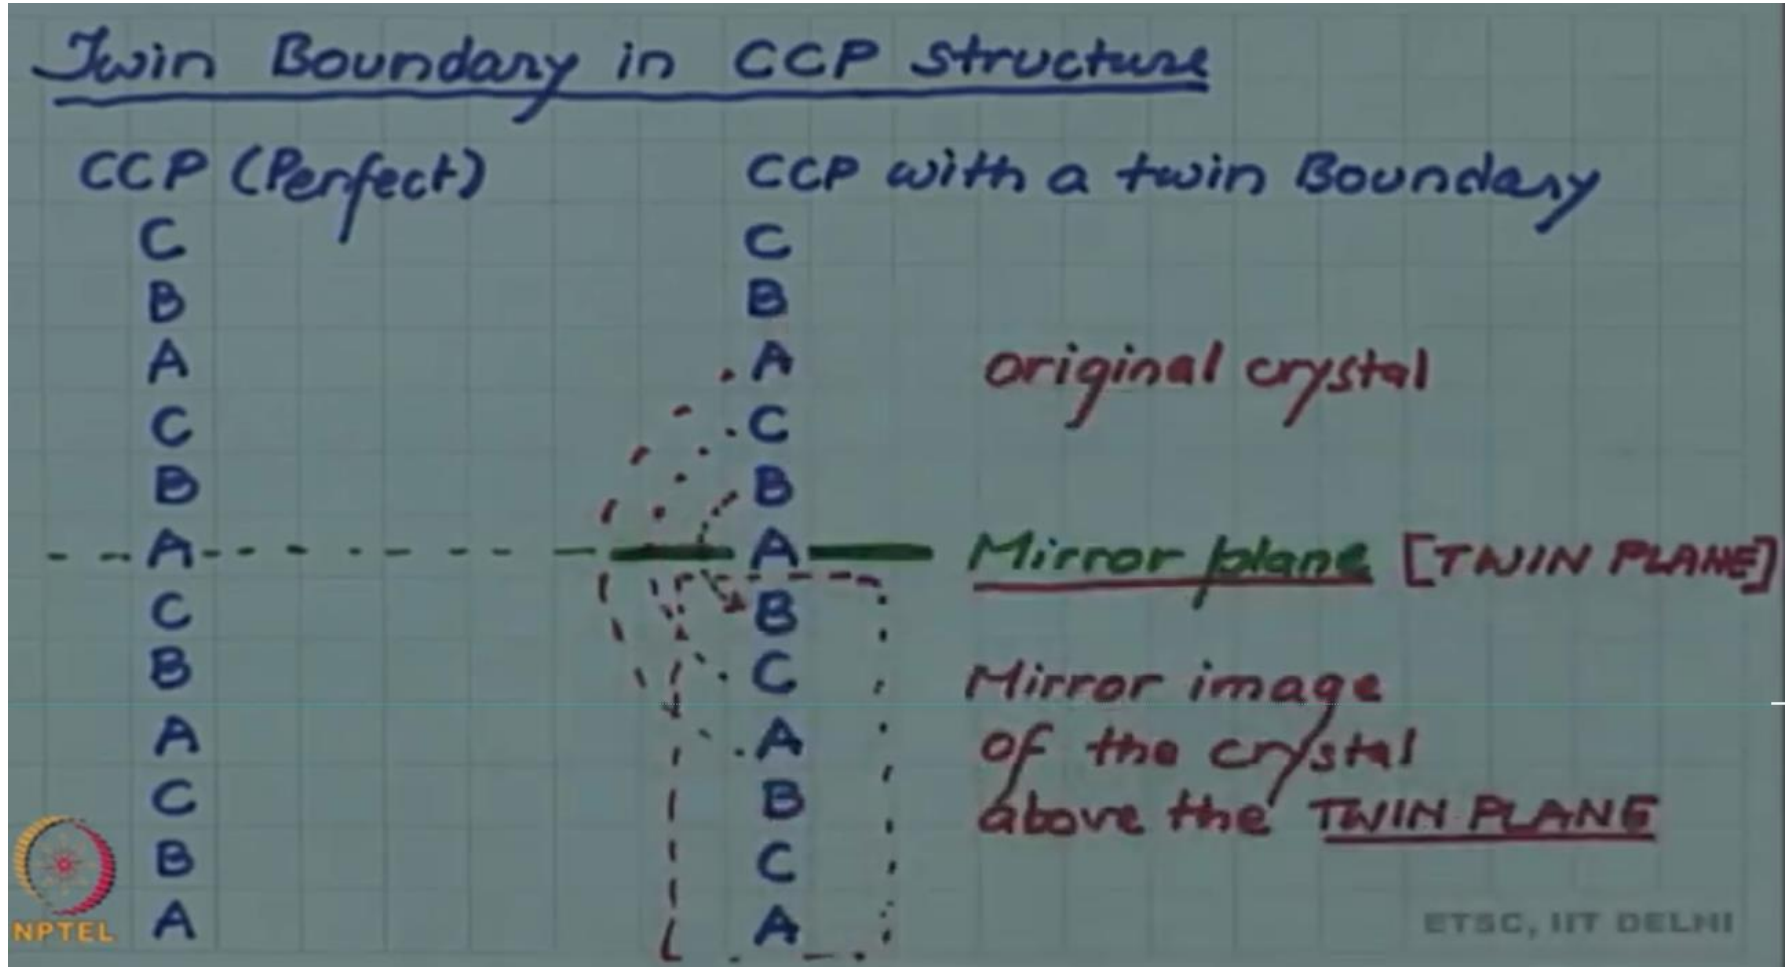 Twin Boundary in CCP structure
CCP (Perfect)
CCP with a twin Boundary
C
B
A
C
B
A
C
B
A
C
B
A
C
B
A
C
B
A
B
C
A
B
C
A
original crystal
Mirror plane [TWIN PLANE]
Mirror image
of the crystal
above the TWIN PLANE
NPTEL
ETSC, IIT DELHI